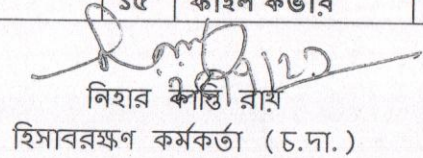 ১৫ ফাইল কভার
নিহার কান্তি রায়
হিসাবরক্ষণ কর্মকর্তা (চ.দা.)